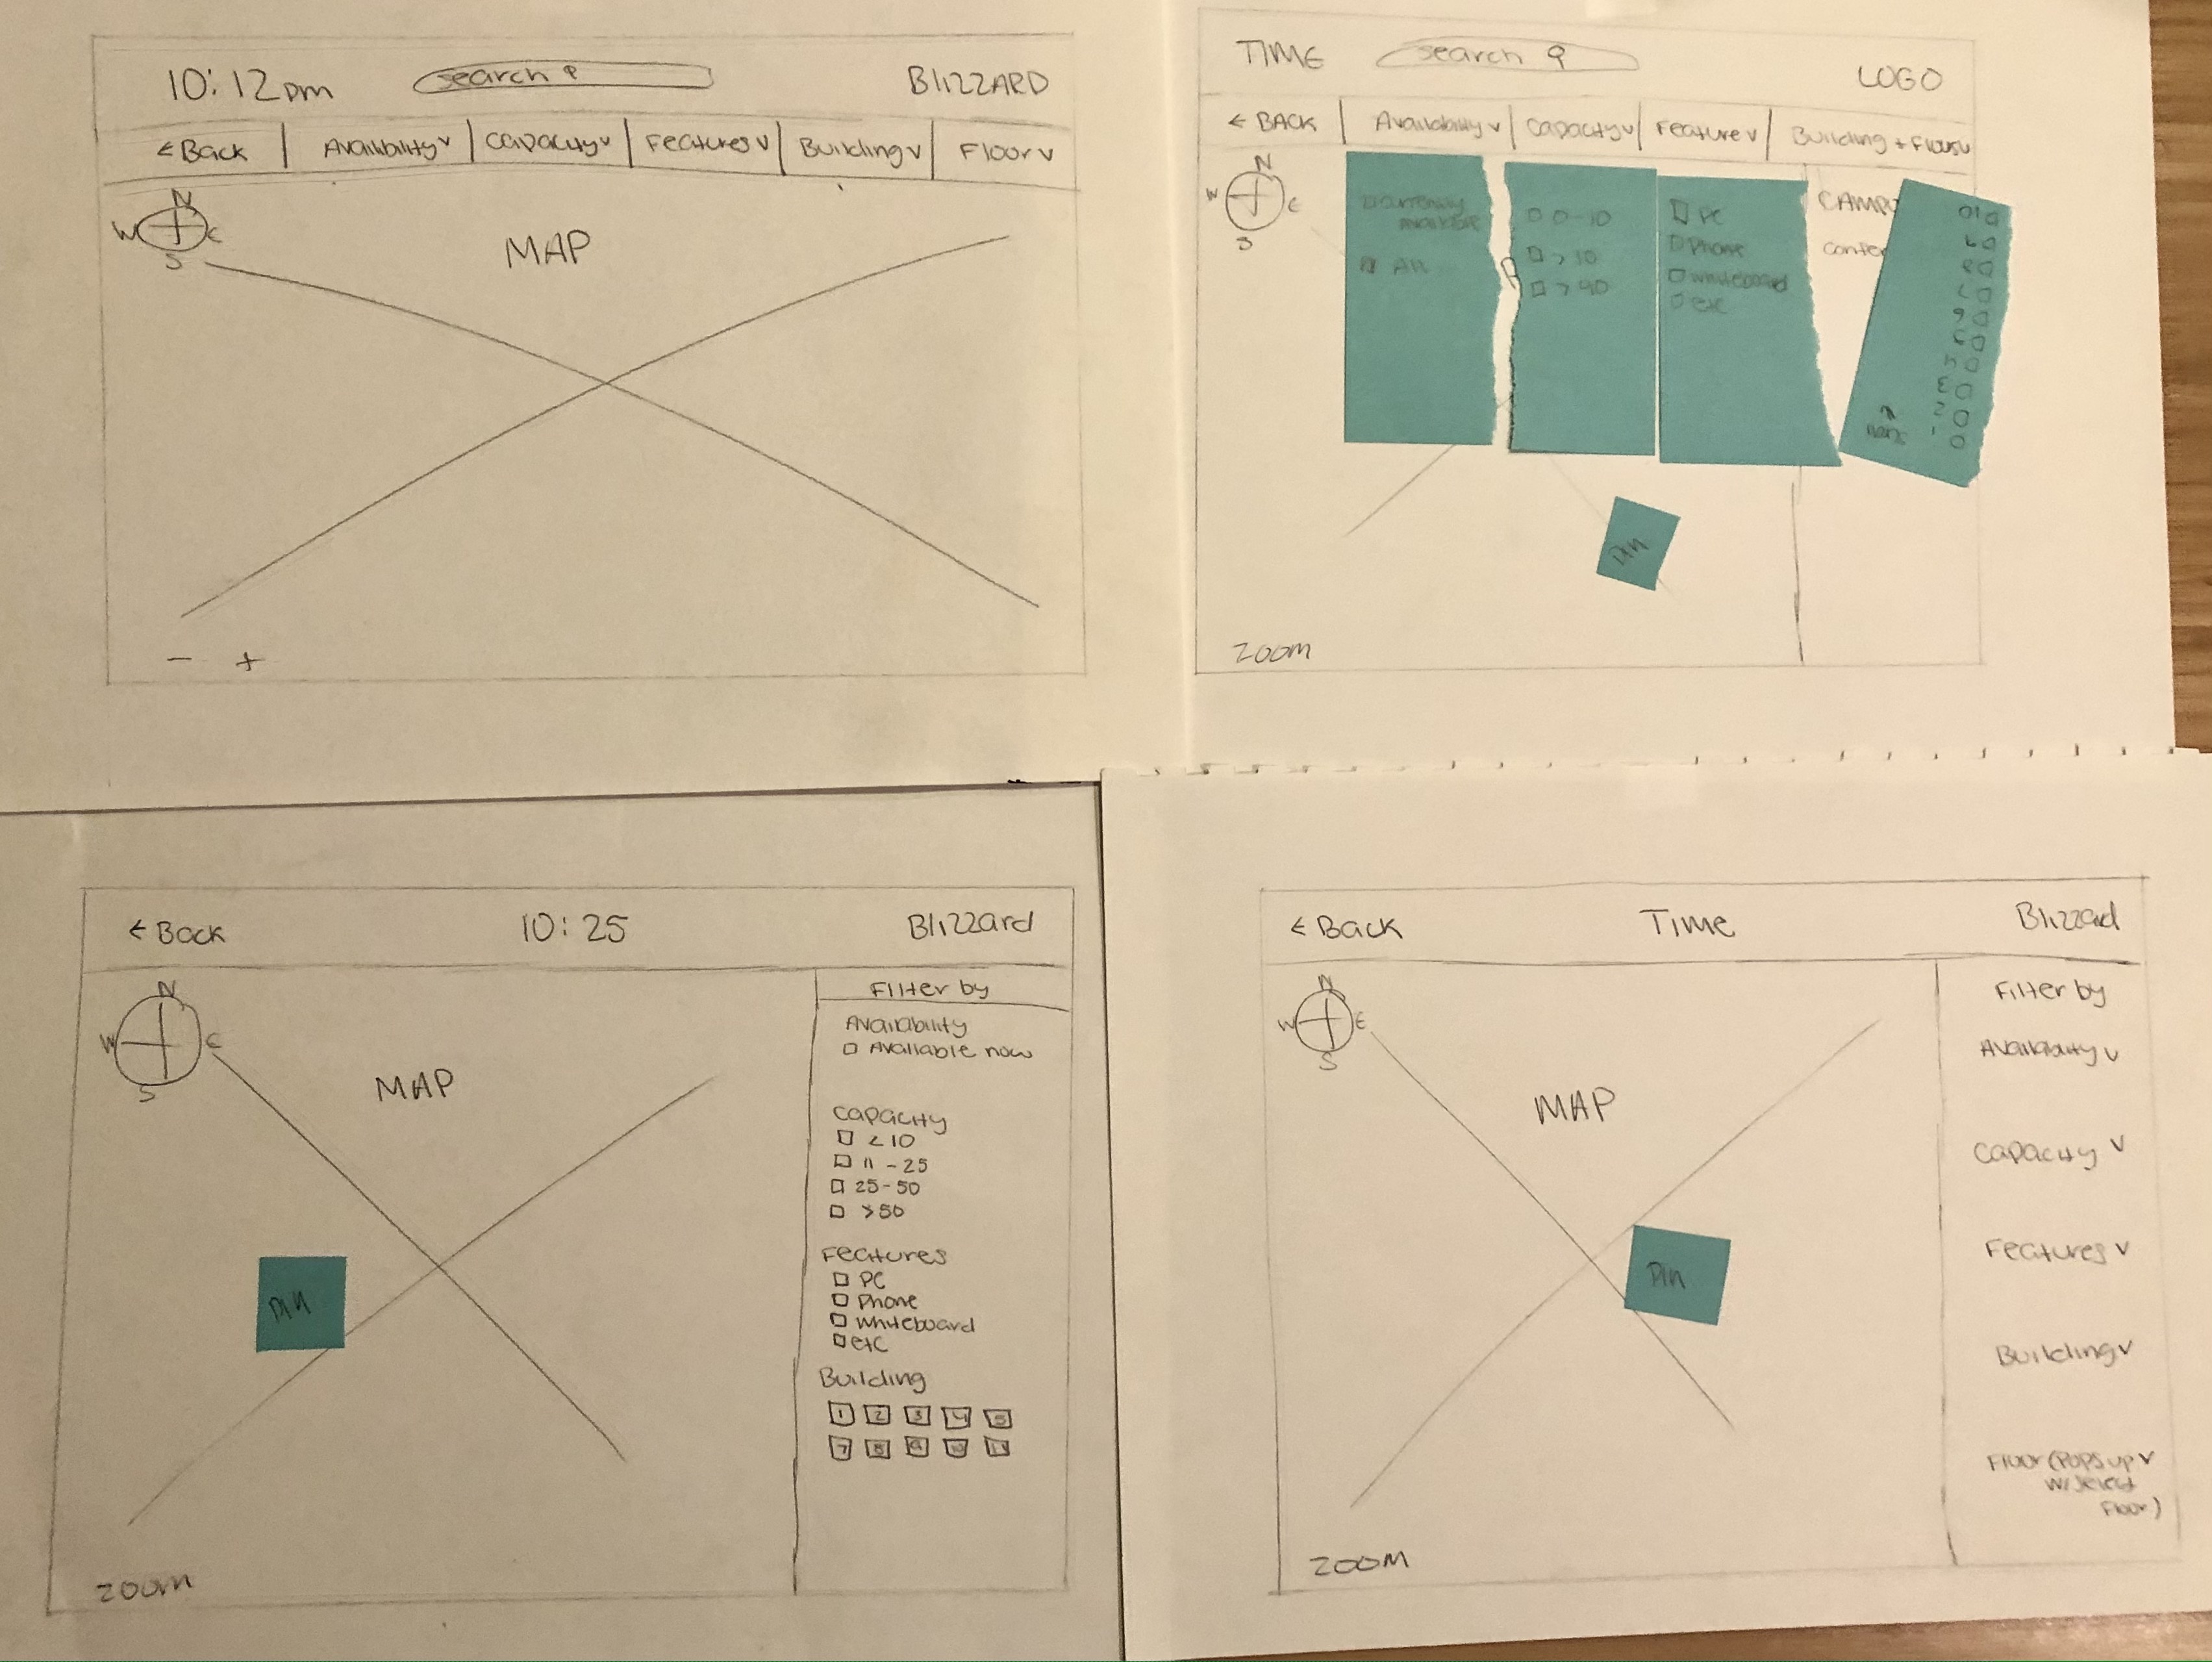 10:12pm search BLIZZARD
< Back Availibility v Capacity v Features v Building v Floor v
N
W E
S
MAP
- +
TIME search LOGO
< BACK Availability v Capacity v Feature v Building + Floors v
N
W E
S
Currently available
All
0-10
> 10
> 40
PC
Phone
whiteboard
etc
10
9
8
7
6
5
4
3
2
1
PIN
ZOOM
< Back 10:25 Blizzard
N
W E
S
MAP
PIN
ZOOM
Filter by
Availability
Available now
Capacity
< 10
11 - 25
25-50
>50
Features
PC
Phone
whiteboard
etc
Building
1 2 3 4 5
7 8 9 10 11
< Back Time Blizzard
N
W E
S
MAP
PIN
ZOOM
Filter by
Availability v
Capacity v
Features v
Building v
Floor (Pops up v
w/ select
Floor)